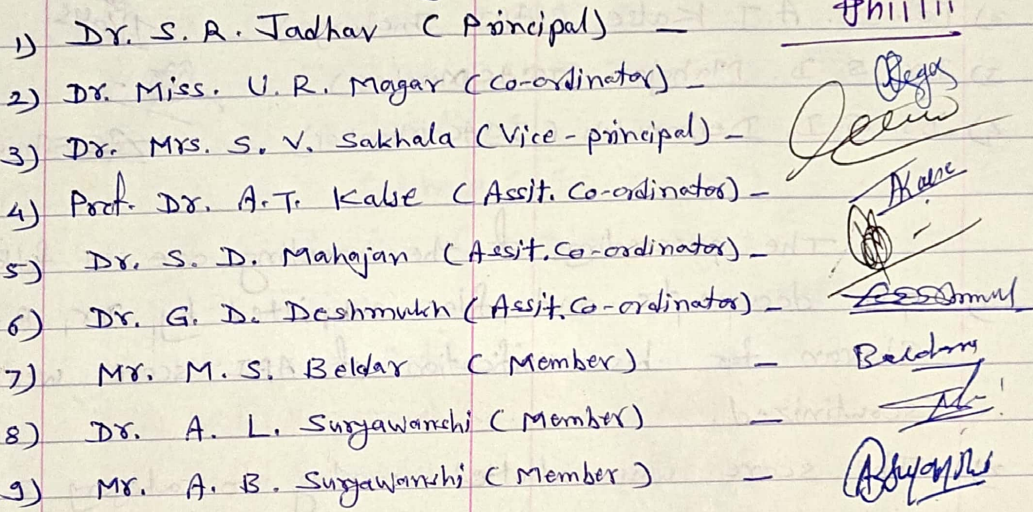 1) Dr. S. R. Jadhav ( Principal) —
2) Dr. Miss. U. R. Magar (Co-ordinator) -
3) Dr. Mrs. S. V. Sakhala (Vice-principal) -
4) Prof. Dr. A. T. Kalse ( Assit. Co-ordinator) -
5) Dr. S. D. Mahajan (Assit. Co-ordinator) -
6) Dr. G. D. Deshmukh (Assit. Co-ordinator) -
7) Mr. M. S. Beldar ( Member ) — Beldar
8) Dr. A. L. Suryawanshi ( Member) —
9) Mr. A. B. Suryawanshi ( Member ) —